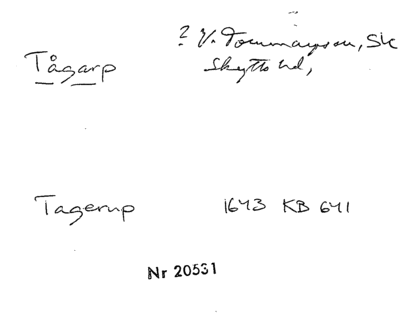 Tågarp
? V. Tommarps sn, Sk
Skytts hd,
Tagerup 1643 KB 641
Nr 20531